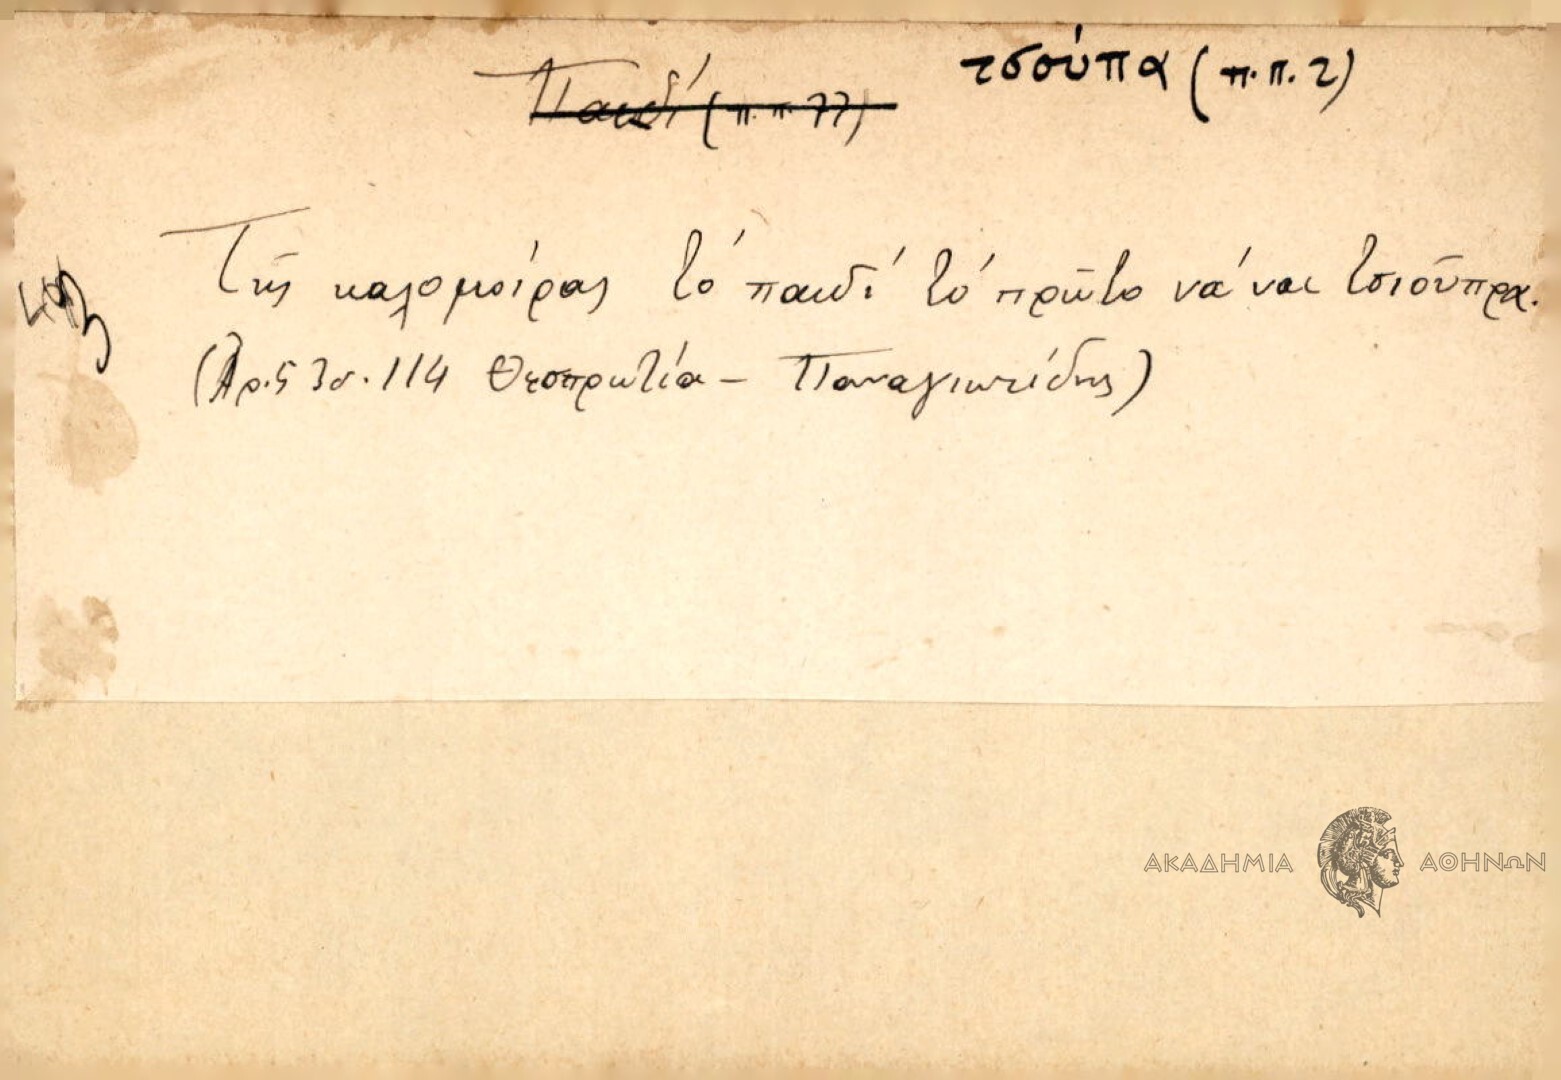 Παιδί (π.π. 77) τσούπα (π.π. 2)
Τῆς καλομοίρας τό παιδί τό πρῶτο νά ναι τσιούπρα.
(Ἀρ. 53 σ. 114 Θεσπρωτία – Παναγιωτίδης)
ΑΚΑΔΗΜΙΑ ΑΘΗΝΩΝ